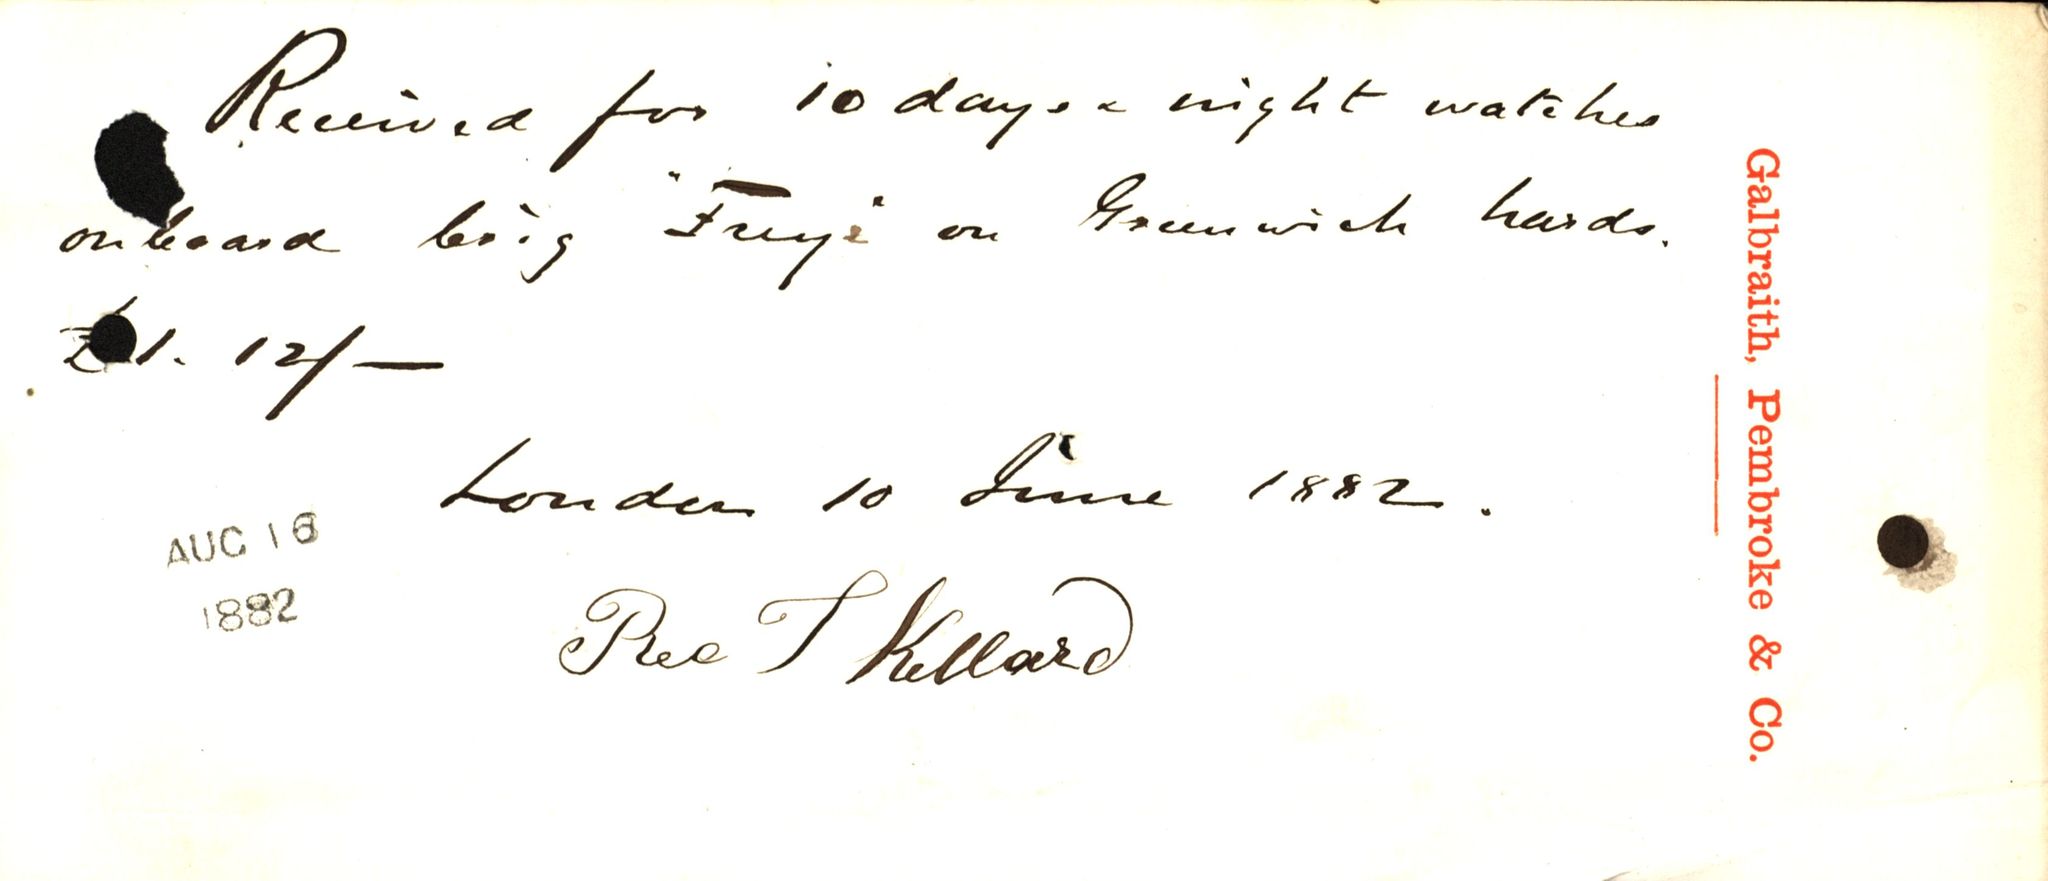 Received for 10 days & night watches
onboard brig "Freye" on Greenwich hards.
£1. 12/—
London 10 June 1882.
AUG 16
1882
Rec T Kellard
Galbraith, Pembroke & Co.